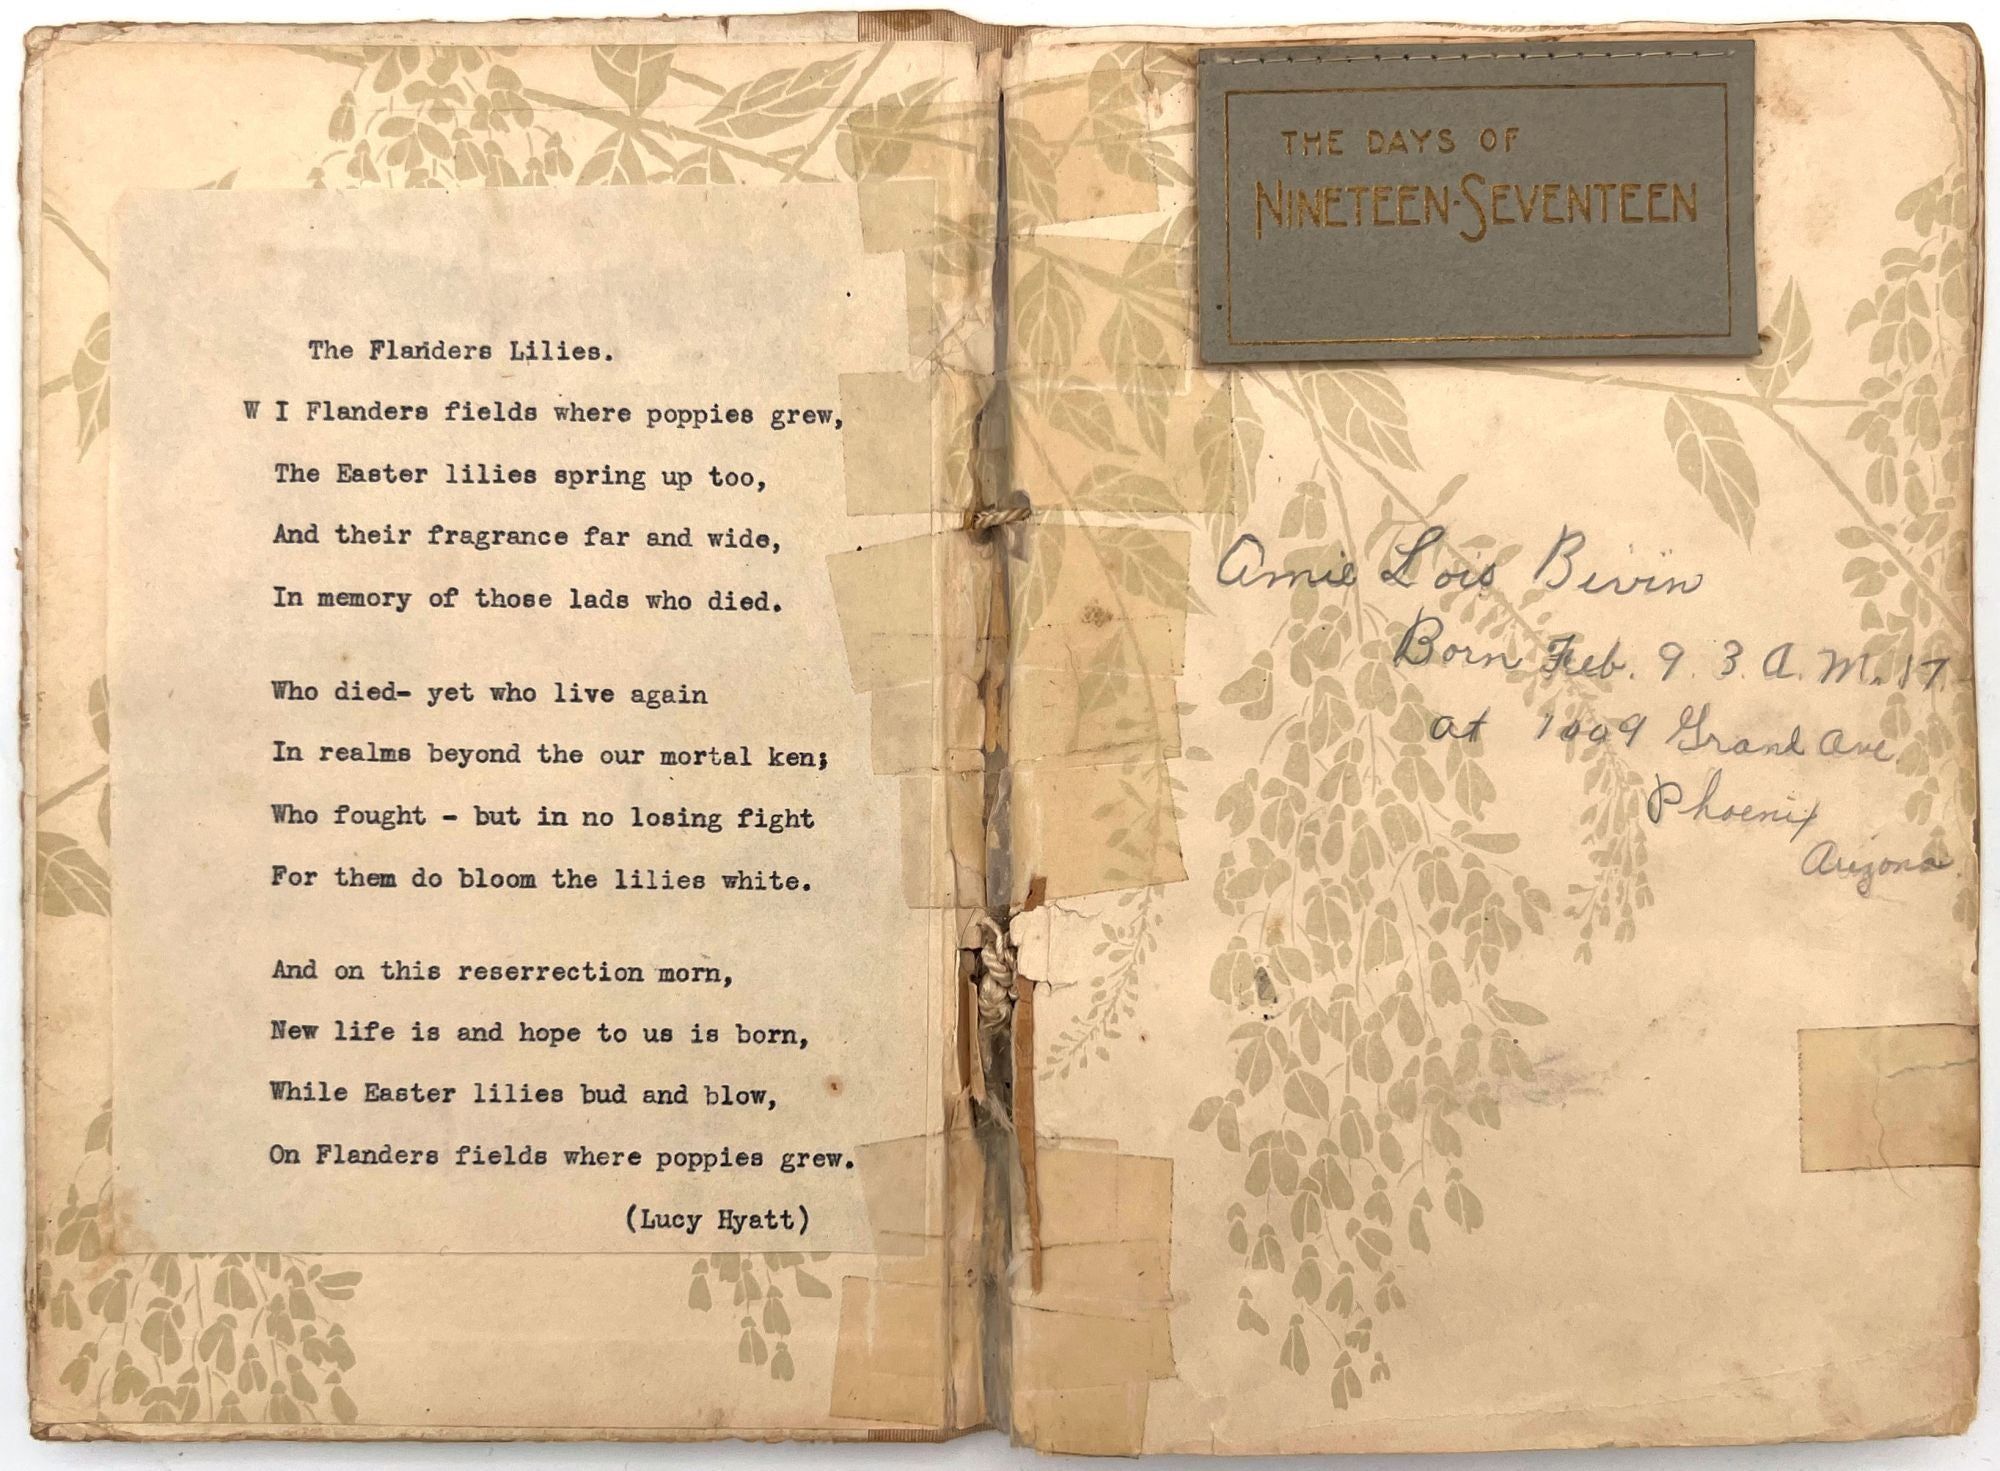 The Flanders Lilies.
W I Flanders fields where poppies grew,
The Easter lilies spring up too,
And their fragrance far and wide,
In memory of those lads who died.
Who died- yet who live again
In realms beyond the our mortal ken;
Who fought - but in no losing fight
For them do bloom the lilies white.
And on this reserrection morn,
New life is and hope to us is born,
While Easter lilies bud and blow,
On Flanders fields where poppies grew.
(Lucy Hyatt)
THE DAYS OF
NINETEEN-SEVENTEEN
Amie Lois Bivin
Born Feb. 9. 3. A. M. 17
at 1009 Grand Ave
Phoenix
Arizona.